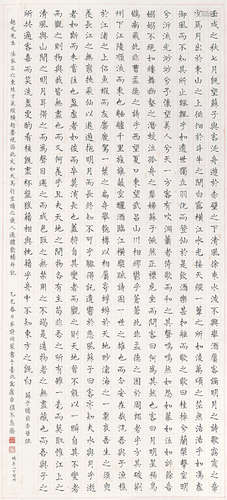 壬戌之秋七月既望蘇子與客泛舟遊於赤壁之下清風徐來水波不興舉酒屬客誦明月之詩歌窈窕之章少
焉月出於東山之上徘徊於斗牛之間白露橫江水光接天縱一葦之所如凌萬頃之茫然浩浩乎如馮虛
御風而不知其所止飄飄乎如遺世獨立羽化而登仙於是飲酒樂甚扣舷而歌之歌曰桂棹兮蘭槳擊空明兮
溯流光渺渺兮予懷望美人兮天一方客有吹洞簫者倚歌而和之其聲嗚嗚然如怨如慕如泣如訴餘音嫋嫋
不絕如縷舞幽壑之潛蛟泣孤舟之嫠婦蘇子愀然正襟危坐而問客曰何為其然也客曰月明星稀烏
鵲南飛此非曹孟德之詩乎西望夏口東望武昌山川相繆鬱乎蒼蒼此非孟德之困於周郎者乎方其破荊
州下江陵順流而東也舳艫千里旌旗蔽空釃酒臨江橫槊賦詩固一世之雄也而今安在哉況吾與子漁樵
於江渚之上侶魚蝦而友麋鹿駕一葉之扁舟舉匏樽以相屬寄蜉蝣於天地渺滄海之一粟哀吾生之須臾
羨長江之無窮挾飛仙以遨遊抱明月而長終知不可乎驟得託遺響於悲風蘇子曰客亦知夫水與月乎逝
者如斯而未嘗往也盈虛者如彼而卒莫消長也蓋將自其變者而觀之則天地曾不能以一瞬自其不變者
而觀之則物與我皆無盡也而又何羨乎且夫天地之間物各有主苟非吾之所有雖一毫而莫取惟江上之
清風與山間之明月耳得之而為聲目遇之而成色取之無禁用之不竭是造物者之無盡藏也而吾與子之
所共適客喜而笑洗盞更酌肴核既盡杯盤狼藉相與枕藉乎舟中不知東方之既白